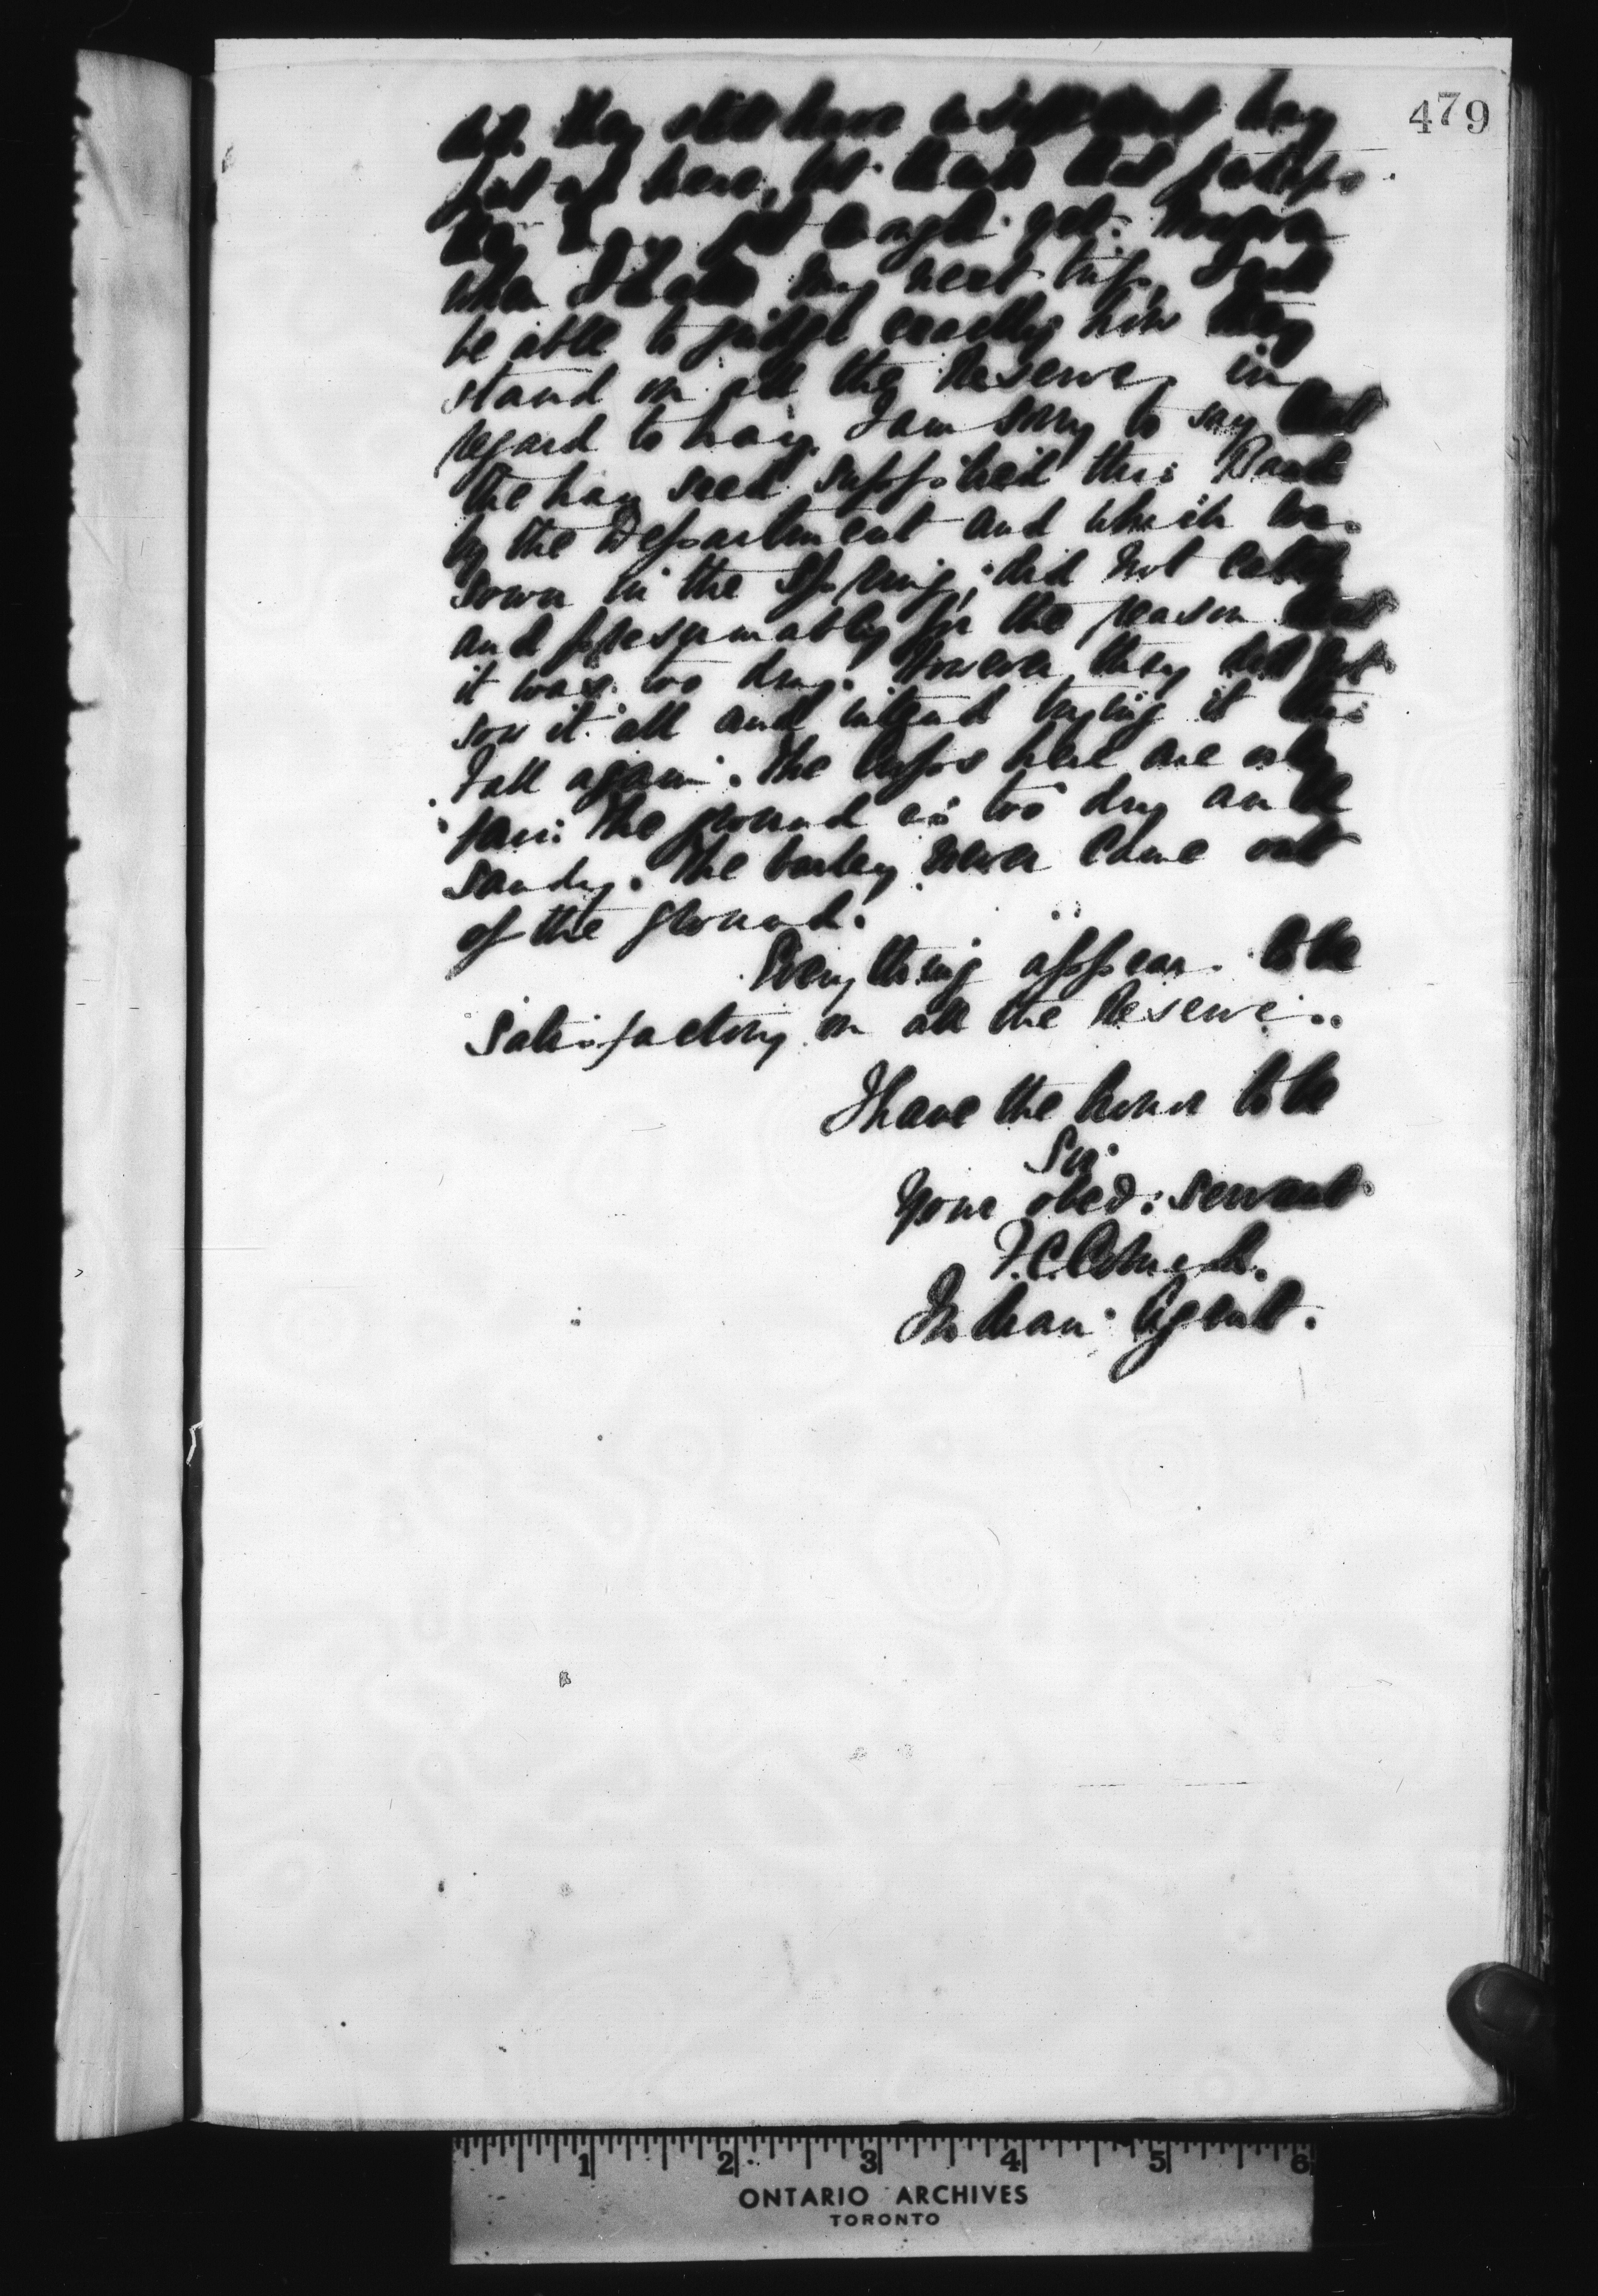 479
they still have
put up here, but think that perhaps
they not enough yet. However
when I take my next trip, I will
be able to judge exactly how they
stand on all the Reserves in
regard to hay. I am sorry to say that
the hay seed supplied this Band
by the Department and which was
sown in the Spring, did not catch
and presumably for the reason that
it was too dry. However they did not
sow it all and intend trying it this
Fall again. The crops here are only
fair. The ground is too dry and
sandy. The barley never came out
of the ground.
Everything appears to be
satisfactory on all the Reserves.
I have the honor to be
Sir
Your obed: servant
Indian Agent.
1 2 3 4 5 6
ONTARIO ARCHIVES
TORONTO